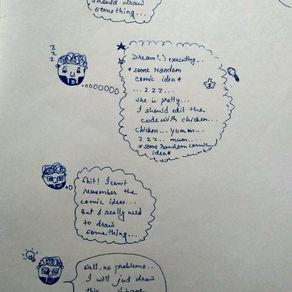 should draw
something...
z
z
z
Dream() executing...
*some random
comic idea*
...zzz...
she is pretty...
I should edit the
code with chicken...
chicken... yummm...
zzz... mum....
*some random comic
idea*
Shit! I can't
remember the
comic ideas...
But I really need
to draw
something...
Well, no problems..
I will just draw
this. I have